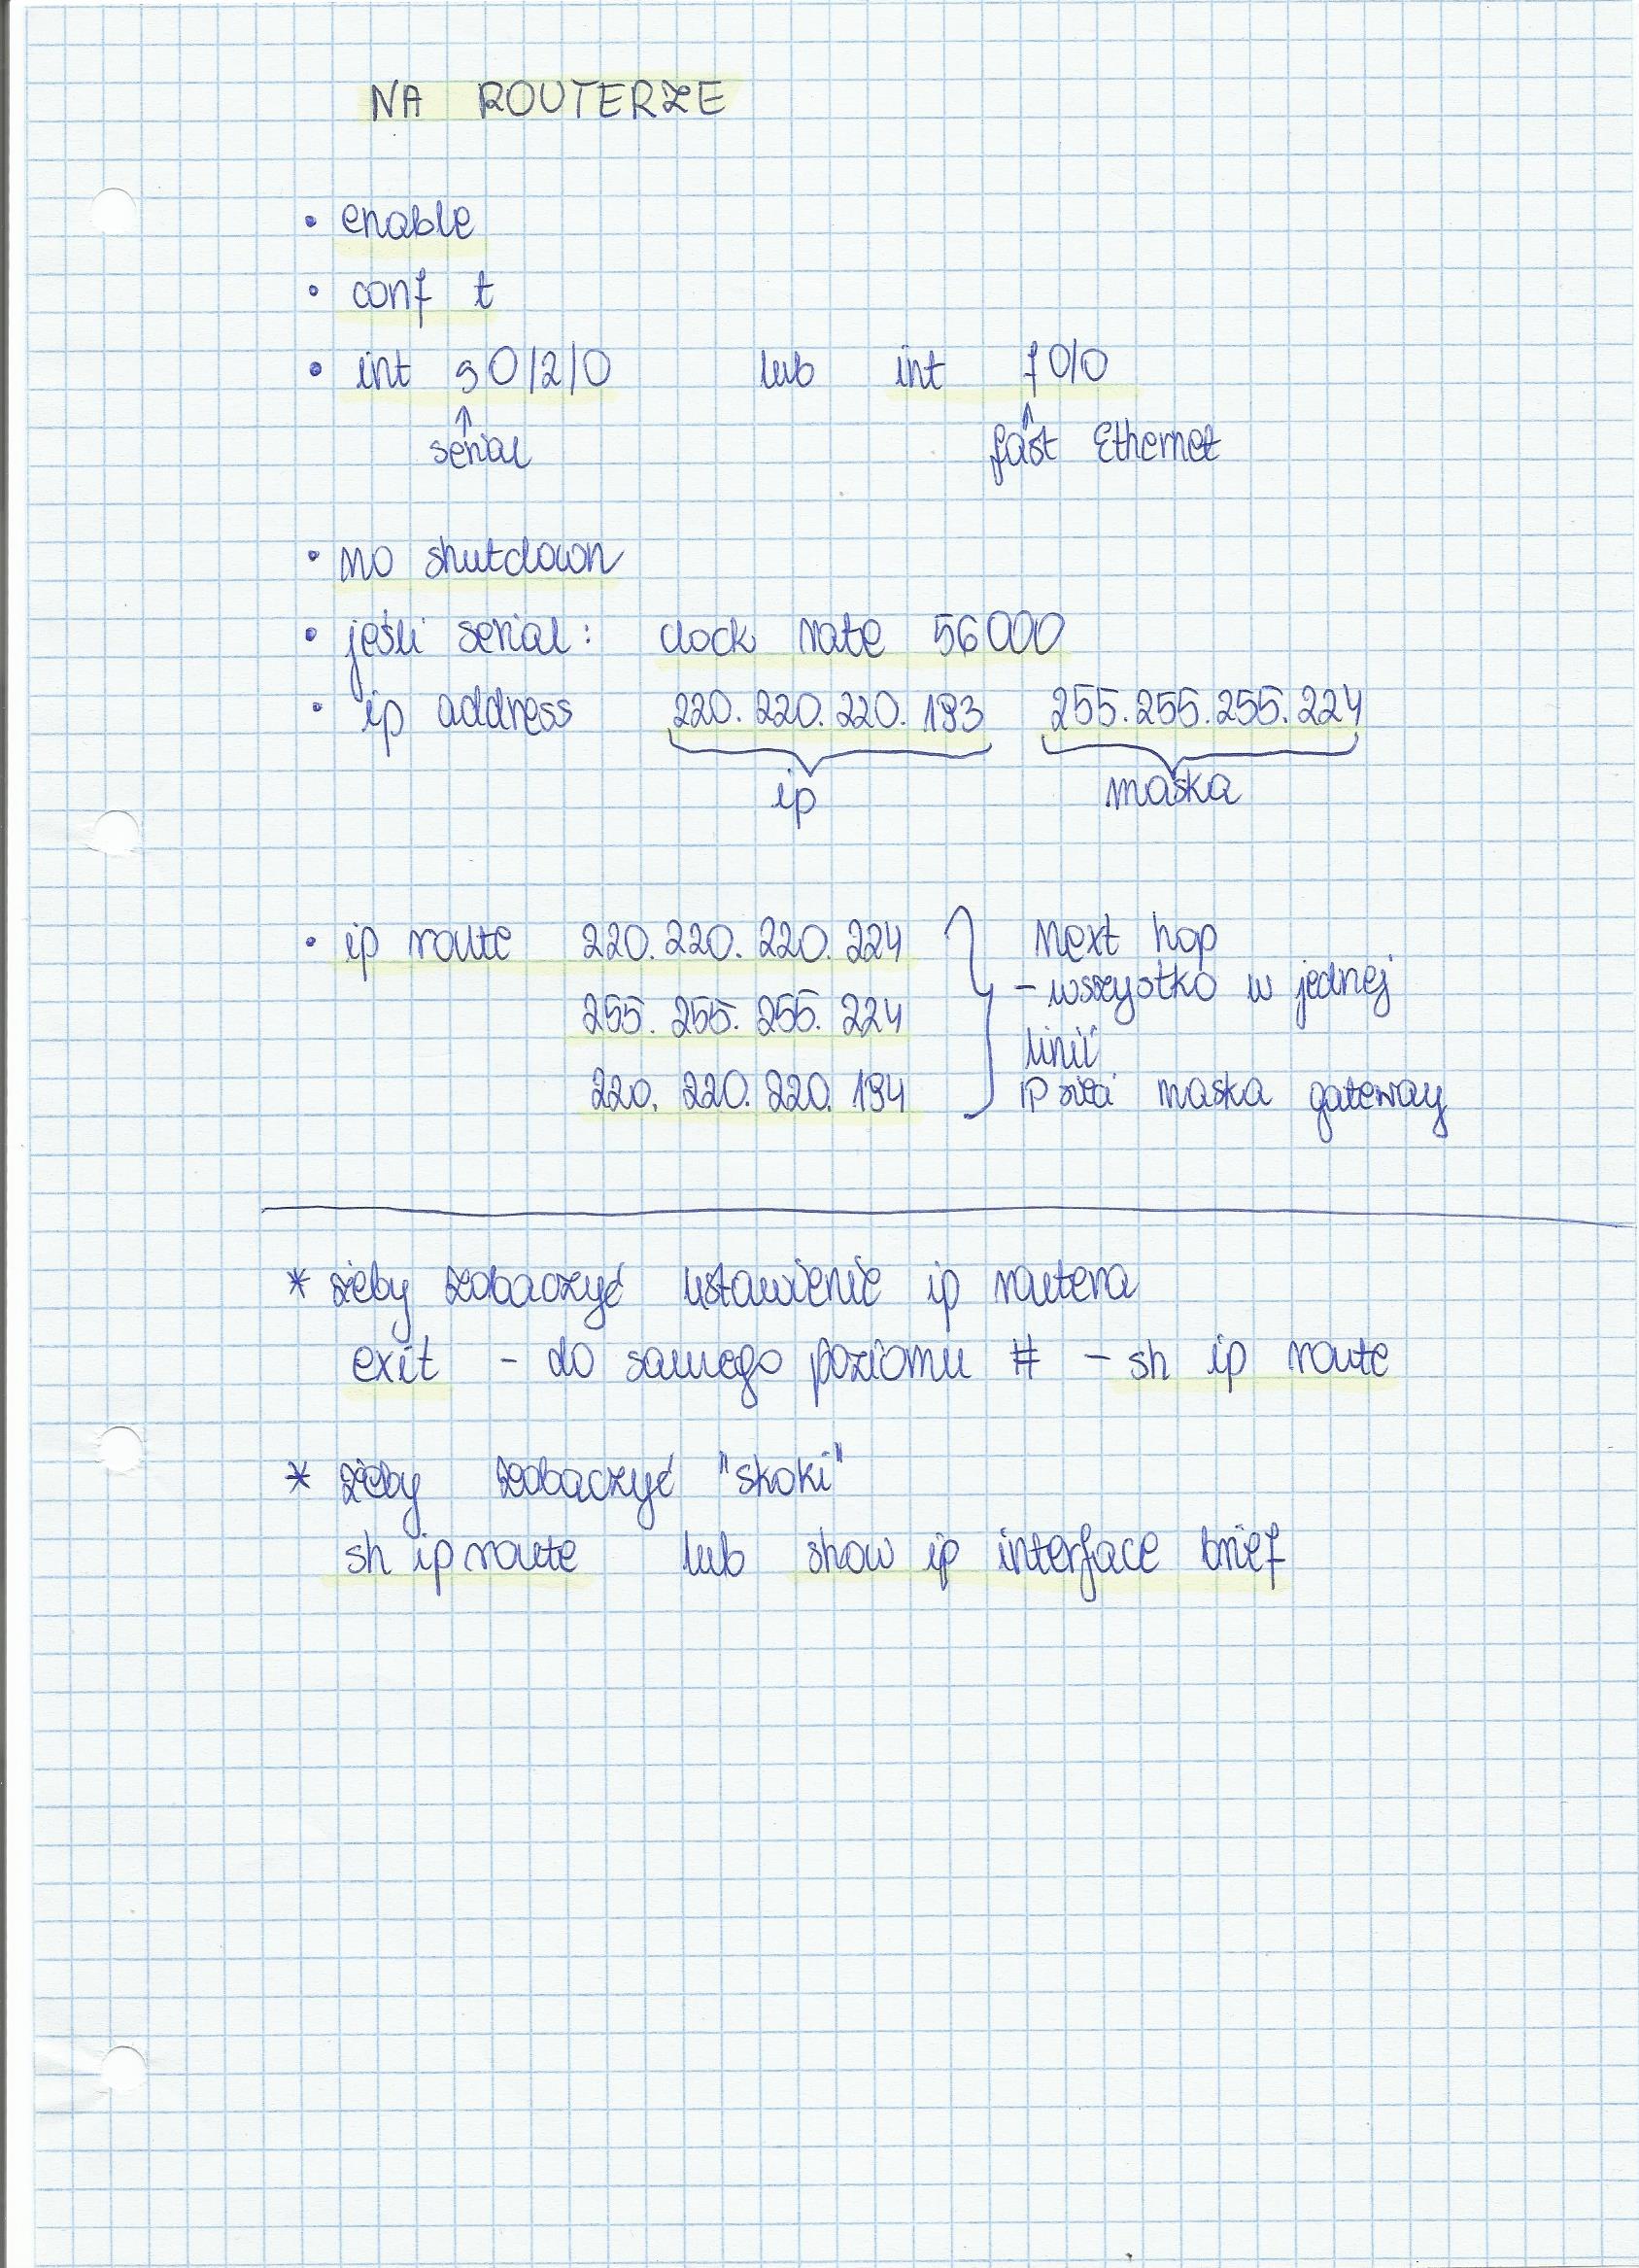 NA ROUTERZE
• enable
• conf t
• int s0/2/0 lub int f0/0
serial fast Ethernet
• no shutdown
• jeśli serial: clock rate 56000
• ip address 220.220.220.193 255.255.255.224
ip maska
• ip route 220.220.220.224 next hop
- wszystko w jednej
255.255.255.224 linii
220.220.220.194 IP sieci maska gateway
* żeby zobaczyć ustawienie ip routera
exit - do samego poziomu # - sh ip route
* żeby zobaczyć "skoki"
sh ip route lub show ip interface brief